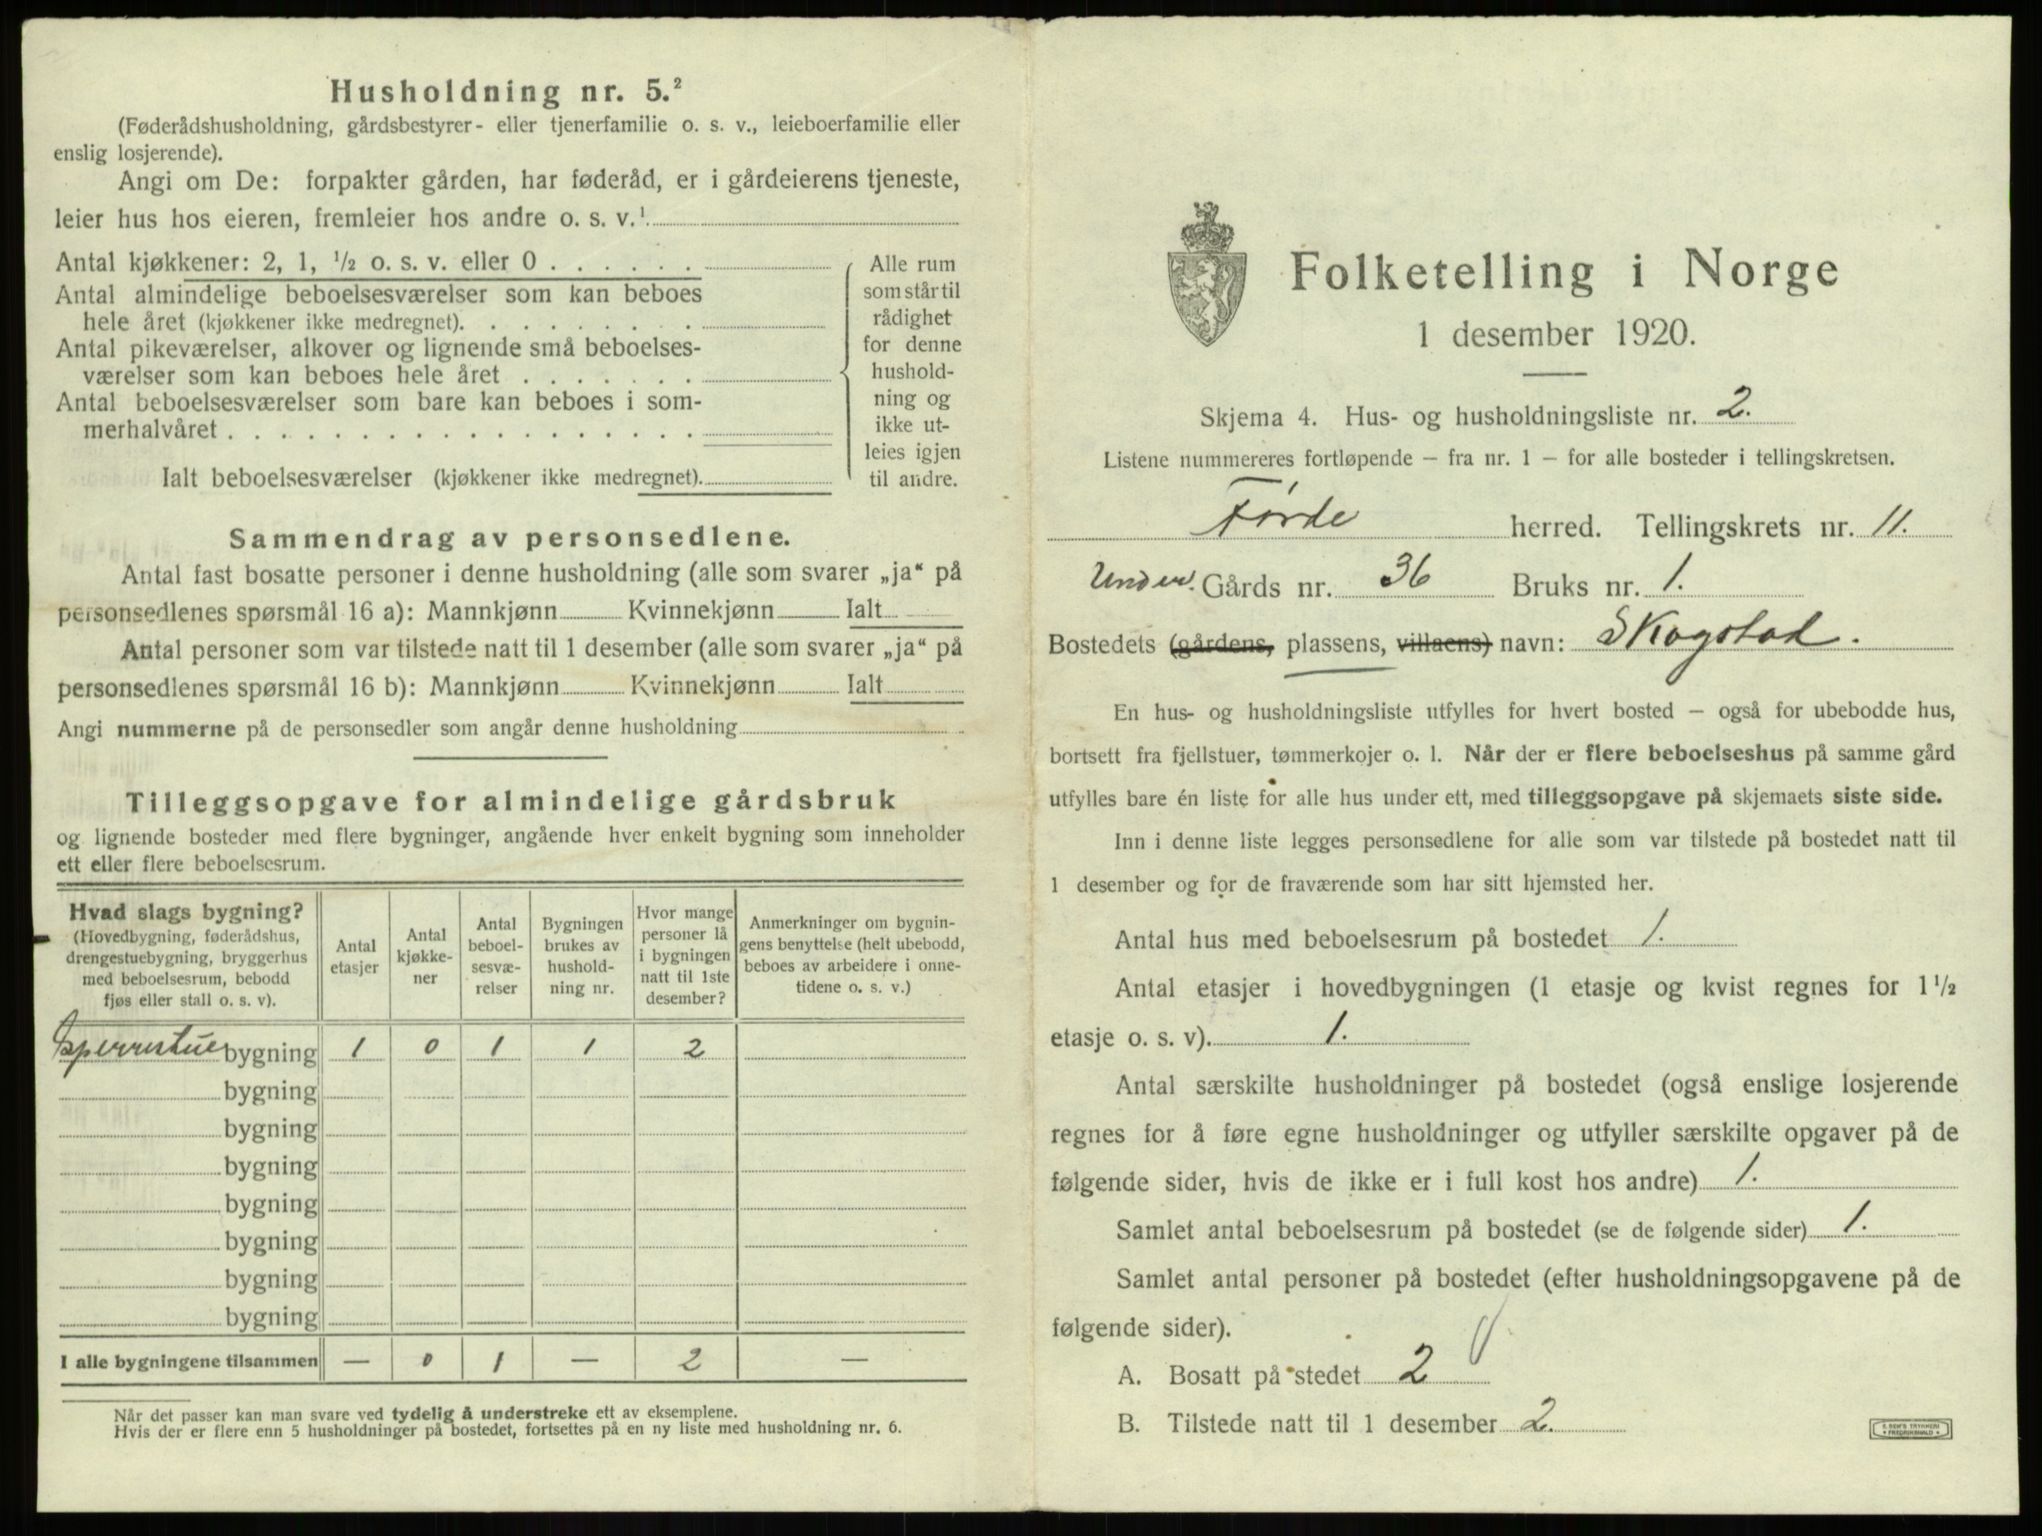 Husholdning nr. 5.²
(Føderådshusholdning, gårdsbestyrer- eller tjenerfamilie o. s. v., leieboerfamilie eller
enslig losjerende).
Angi om De: forpakter gården, har føderåd, er i gårdeierens tjeneste,
leier hus hos eieren, fremleier hos andre o. s. v.¹
Antal kjøkkener: 2, 1, ½ o. s. v. eller 0
Antal almindelige beboelsesværelser som kan beboes
hele året (kjøkkener ikke medregnet).
Antal pikeværelser, alkover og lignende små beboelses-
værelser som kan beboes hele året
Antal beboelsesværelser som bare kan beboes i som-
merhalvåret
Ialt beboelsesværelser (kjøkkener ikke medregnet).
Alle rum
som står til
rådighet
for denne
hushold-
ning og
ikke ut-
leies igjen
til andre.
Sammendrag av personsedlene.
Antal fast bosatte personer i denne husholdning (alle som svarer „ja“ på
personsedlenes spørsmål 16 a): Mannkjønn Kvinnekjønn Ialt
Antal personer som var tilstede natt til 1 desember (alle som svarer „ja“ på
personsedlenes spørsmål 16 b): Mannkjønn Kvinnekjønn Ialt
Angi nummerne på de personsedler som angår denne husholdning
Tilleggsopgave for almindelige gårdsbruk
og lignende bosteder med flere bygninger, angående hver enkelt bygning som inneholder
ett eller flere beboelsesrum.
Hvad slags bygning?
(Hovedbygning, føderådshus,
drengestuebygning, bryggerhus
med beboelsesrum, bebodd
fjøs eller stall o. s. v).
Antal
etasjer
Antal
kjøkke-
ner
Antal
beboel-
sesvæ-
relser
Bygningen
brukes av
hushold-
ning nr.
Hvor mange
personer lå
i bygningen
natt til 1ste
desember?
Anmerkninger om bygnin-
gens benyttelse (helt ubebodd,
beboes av arbeidere i onne-
tidene o. s. v.)
bygning 1 0 1 1 2
bygning
bygning
bygning
bygning
bygning
bygning
bygning
I alle bygningene tilsammen — 0 1 — 2 —
Når det passer kan man svare ved tydelig å understreke ett av eksemplene.
Hvis der er flere enn 5 husholdninger på bostedet, fortsettes på en ny liste med husholdning nr. 6.
Folketelling i Norge
1 desember 1920.
Skjema 4. Hus- og husholdningsliste nr. 2.
Listene nummereres fortløpende — fra nr. 1 — for alle bosteder i tellingskretsen.
Førde herred. Tellingskrets nr. 11.
Under. Gårds nr. 36 Bruks nr. 1.
Bostedets (gårdens, plassens, villaens) navn: Skogstad.
En hus- og husholdningsliste utfylles for hvert bosted — også for ubebodde hus,
bortsett fra fjellstuer, tømmerkojer o. l. Når der er flere beboelseshus på samme gård
utfylles bare én liste for alle hus under ett, med tilleggsopgave på skjemaets siste side.
Inn i denne liste legges personsedlene for alle som var tilstede på bostedet natt til
1 desember og for de fraværende som har sitt hjemsted her.
Antal hus med beboelsesrum på bostedet 1.
Antal etasjer i hovedbygningen (1 etasje og kvist regnes for 1½
etasje o. s. v). 1.
Antal særskilte husholdninger på bostedet (også enslige losjerende
regnes for å føre egne husholdninger og utfyller særskilte opgaver på de
følgende sider, hvis de ikke er i full kost hos andre) 1.
Samlet antal beboelsesrum på bostedet (se de følgende sider) 1.
Samlet antal personer på bostedet (efter husholdningsopgavene på de
følgende sider).
A. Bosatt på stedet 2
B. Tilstede natt til 1 desember 2.